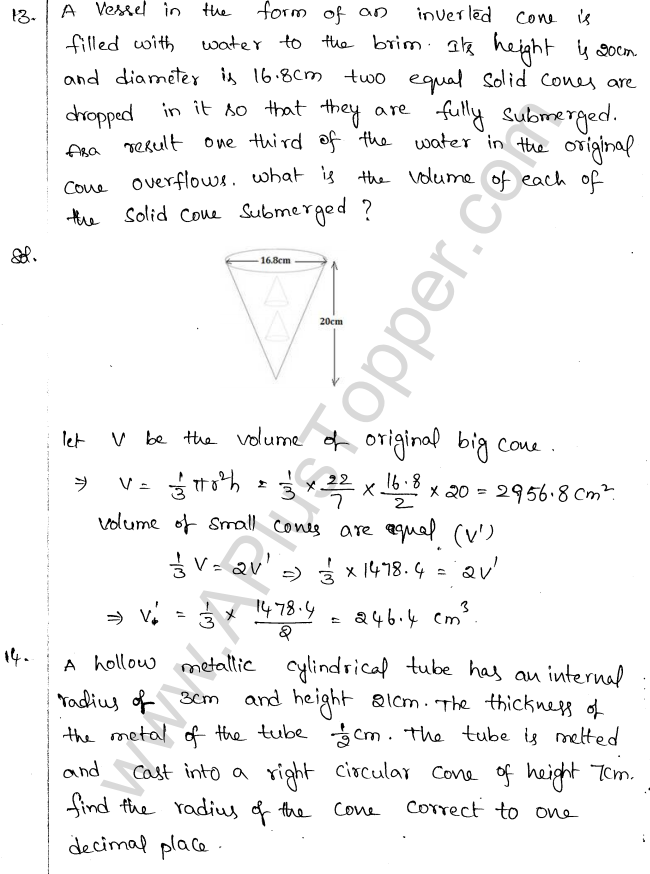 13. A Vessel in the form of an inverted cone is
filled with water to the brim. Its height is 20cm
and diameter is 16.8cm two equal solid cones are
dropped in it so that they are fully submerged.
Asa result one third of the water in the original
cone overflows. what is the volume of each of
the solid cone submerged ?
Sol.
16.8cm
20cm
let V be the volume of original big cone.
⇒ V = 1/3 πr²h = 1/3 × 22/7 × 16.8/2 × 20 = 2956.8 cm².
Volume of small cones are equal (V')
1/3 V = 2V' ⇒ 1/3 × 1478.4 = 2V'
⇒ V' = 1/3 × 1478.4/2 = 246.4 cm³.
14. A hollow metallic cylindrical tube has an internal
radius of 3cm and height 21cm. The thickness of
the metal of the tube 1/2 cm. The tube is melted
and cast into a right circular cone of height 7cm.
find the radius of the cone correct to one
decimal place.
www.APlusTopper.com